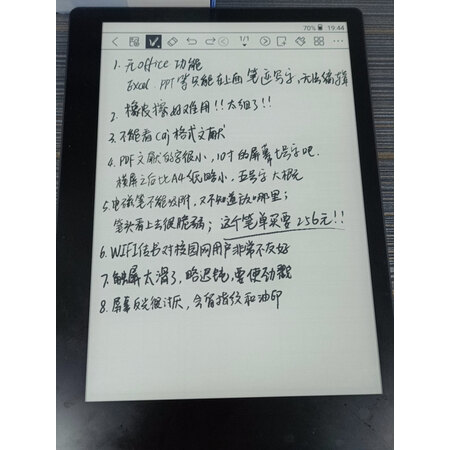 70% 19:44
1/1
1. 无office功能
Excel、PPT等只能在上面笔迹写字,无法编辑
2. 橡皮擦好难用!!太细了!!
3. 不能看caj格式文献
4. PDF文献的字很小,10寸的屏幕七号字吧.
横屏之后比A4纸略小,五号字大概
5. 电磁笔不能吸附,又不知道放哪里;
笔头看上去很脆弱;这个笔单买要256元!!
6. WIFI传书对校园网用户非常不友好
7. 触屏太滑了,略迟钝,要使劲戳
8. 屏幕反光很讨厌,会有指纹和油印